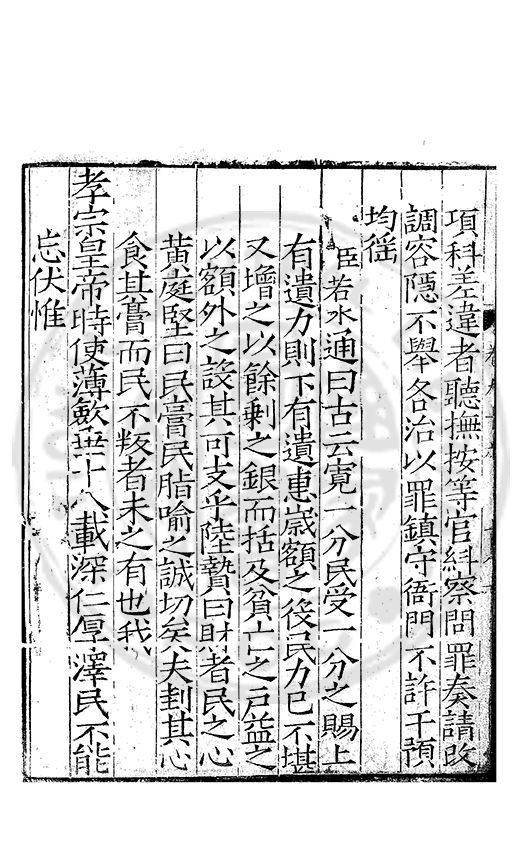 項科差違者聽撫按等官糾察問罪奏請改
調容隱不舉各治以罪鎮守衙門不許干預
均徭
臣若水通曰古云寬一分民受一分之賜上
有遺力則下有遺惠歲額之後民力已不堪
又增之以餘剩之銀而括及貧亡之戶益之
以額外之設其可支乎陸贄曰財者民之心
黃庭堅曰民膏民脂喻之誠切矣夫刲其心
食其膏而民不叛者未之有也我
孝宗皇帝時使薄斂垂十八載深仁厚澤民不能
忘伏惟